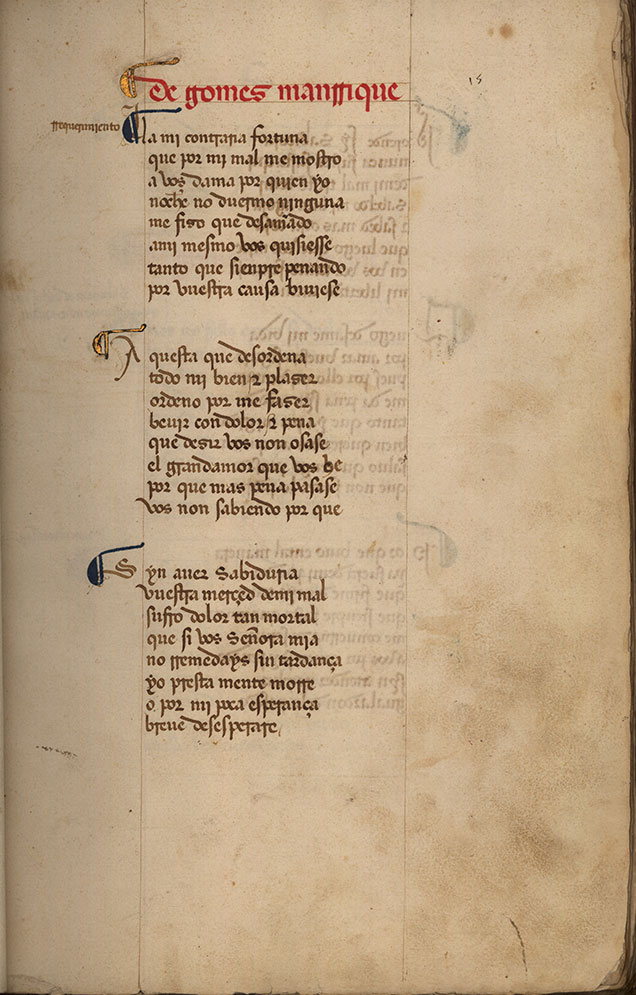 de gomes manrrique
15
rrequerimiento
La mi contraria fortuna
que por mi mal me mostro
a vos dama por quien yo
noche no duermo ninguna
me fiso que desamado
ami mesmo vos quisiesse
tanto que sienpre penando
por vuestra causa biuiese
Aquesta que desordena
todo mi bien & plaser
ordeno por me faser
beuir con dolor & pena
que desir vos non osase
el grand amor que vos he
por que mas pena pasase
vos non sabiendo por que
Syn auer sabiduria
vuestra merced demi mal
sufro dolor tan mortal
que si vos señora mia
no rremedays sin tardança
yo presta mente morre
o por mi poca esperança
breue desesperare